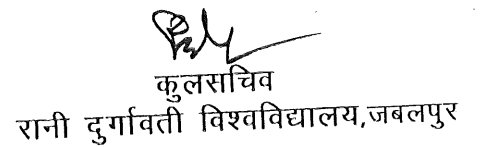 कुलसचिव
रानी दुर्गावती विश्वविद्यालय,जबलपुर